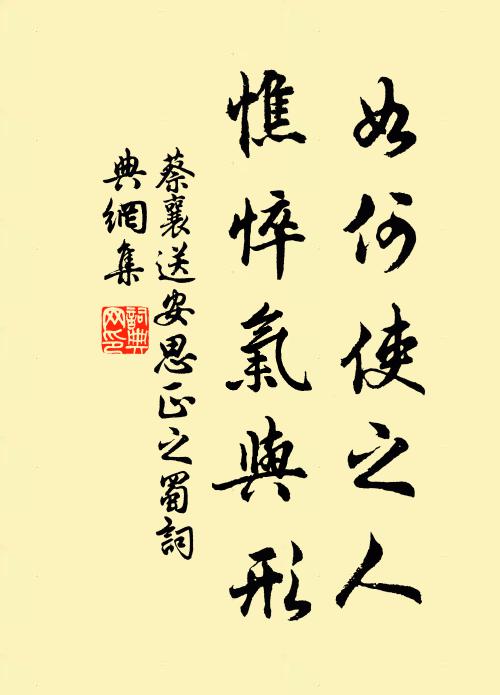 如何使之人
憔悴氣與形
蔡襄送安思正之蜀詞
典網集
詞典網印